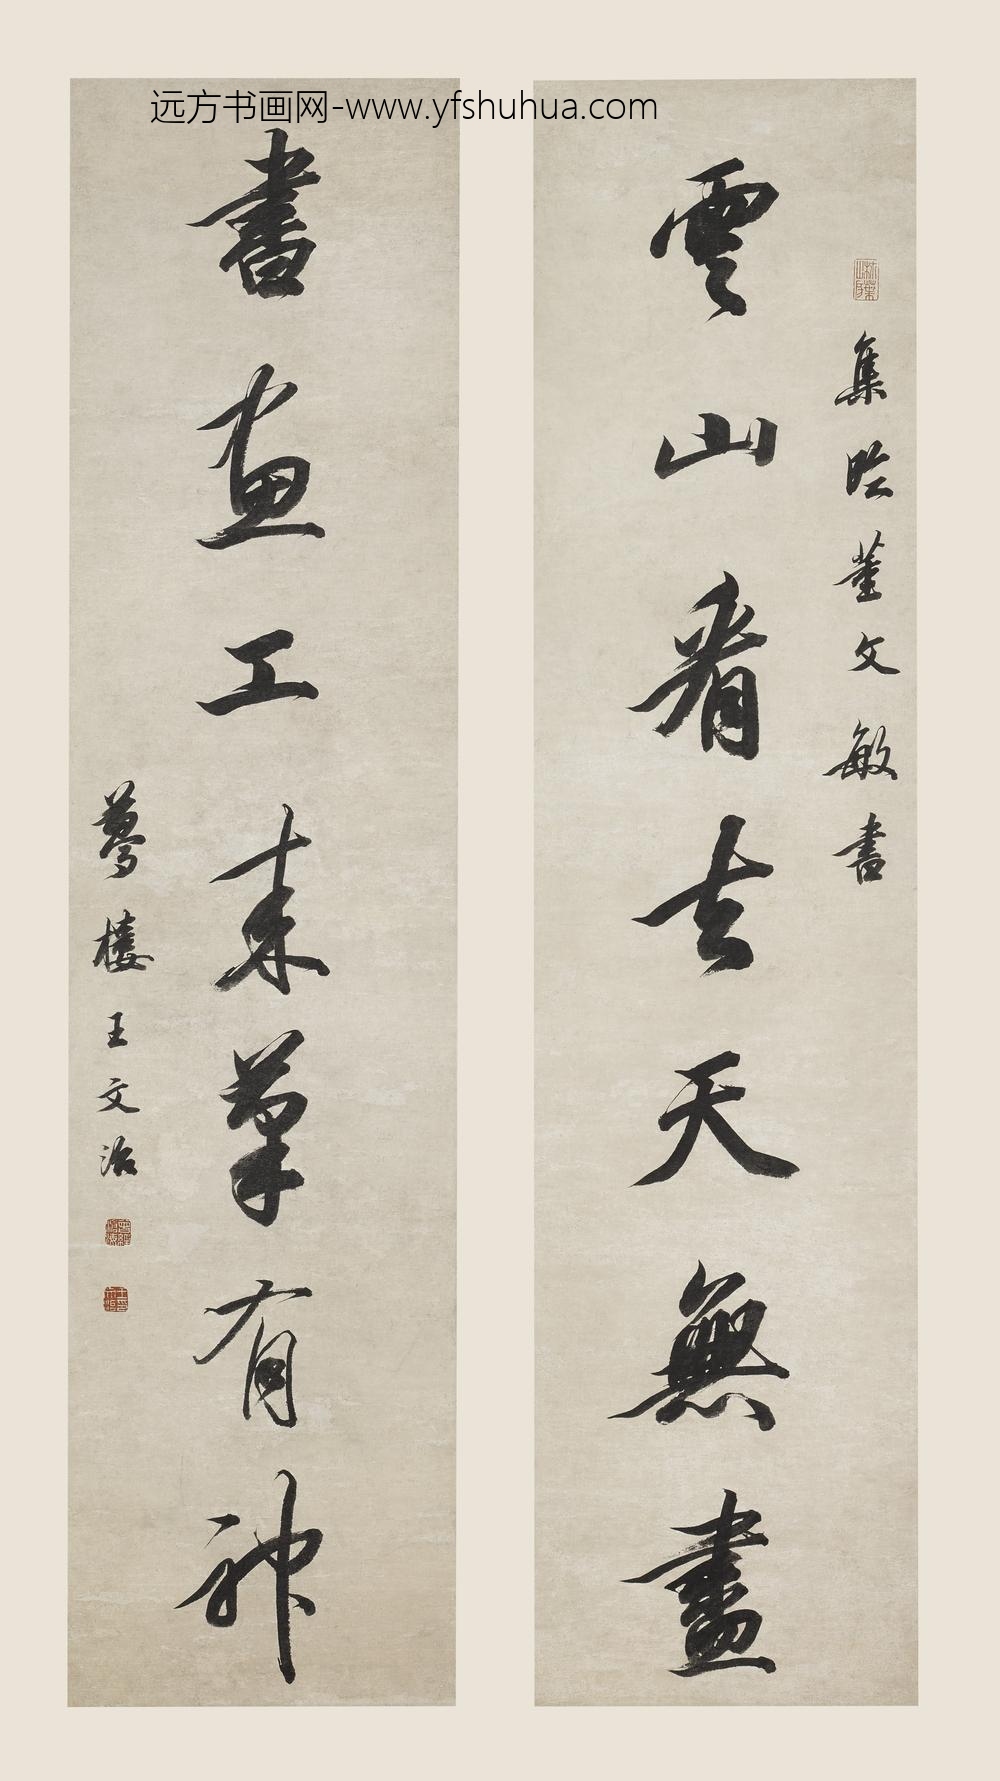 远方书画网-www.yfshuhua.com
集 董文敏書
雲山看去天無盡
書画工来筆有神
夢樓王文治